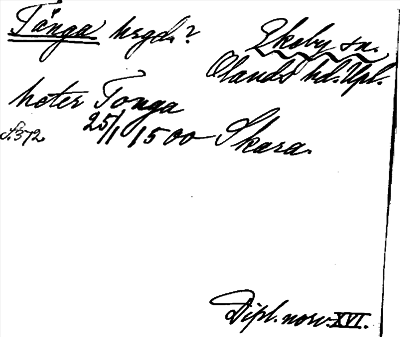 Tånga hrgd.? Ekeby sn.
Olands hd. Upl.
heter Tonga
s. 372 25/1 1500 Skara.
Dipl. norv. XVI.